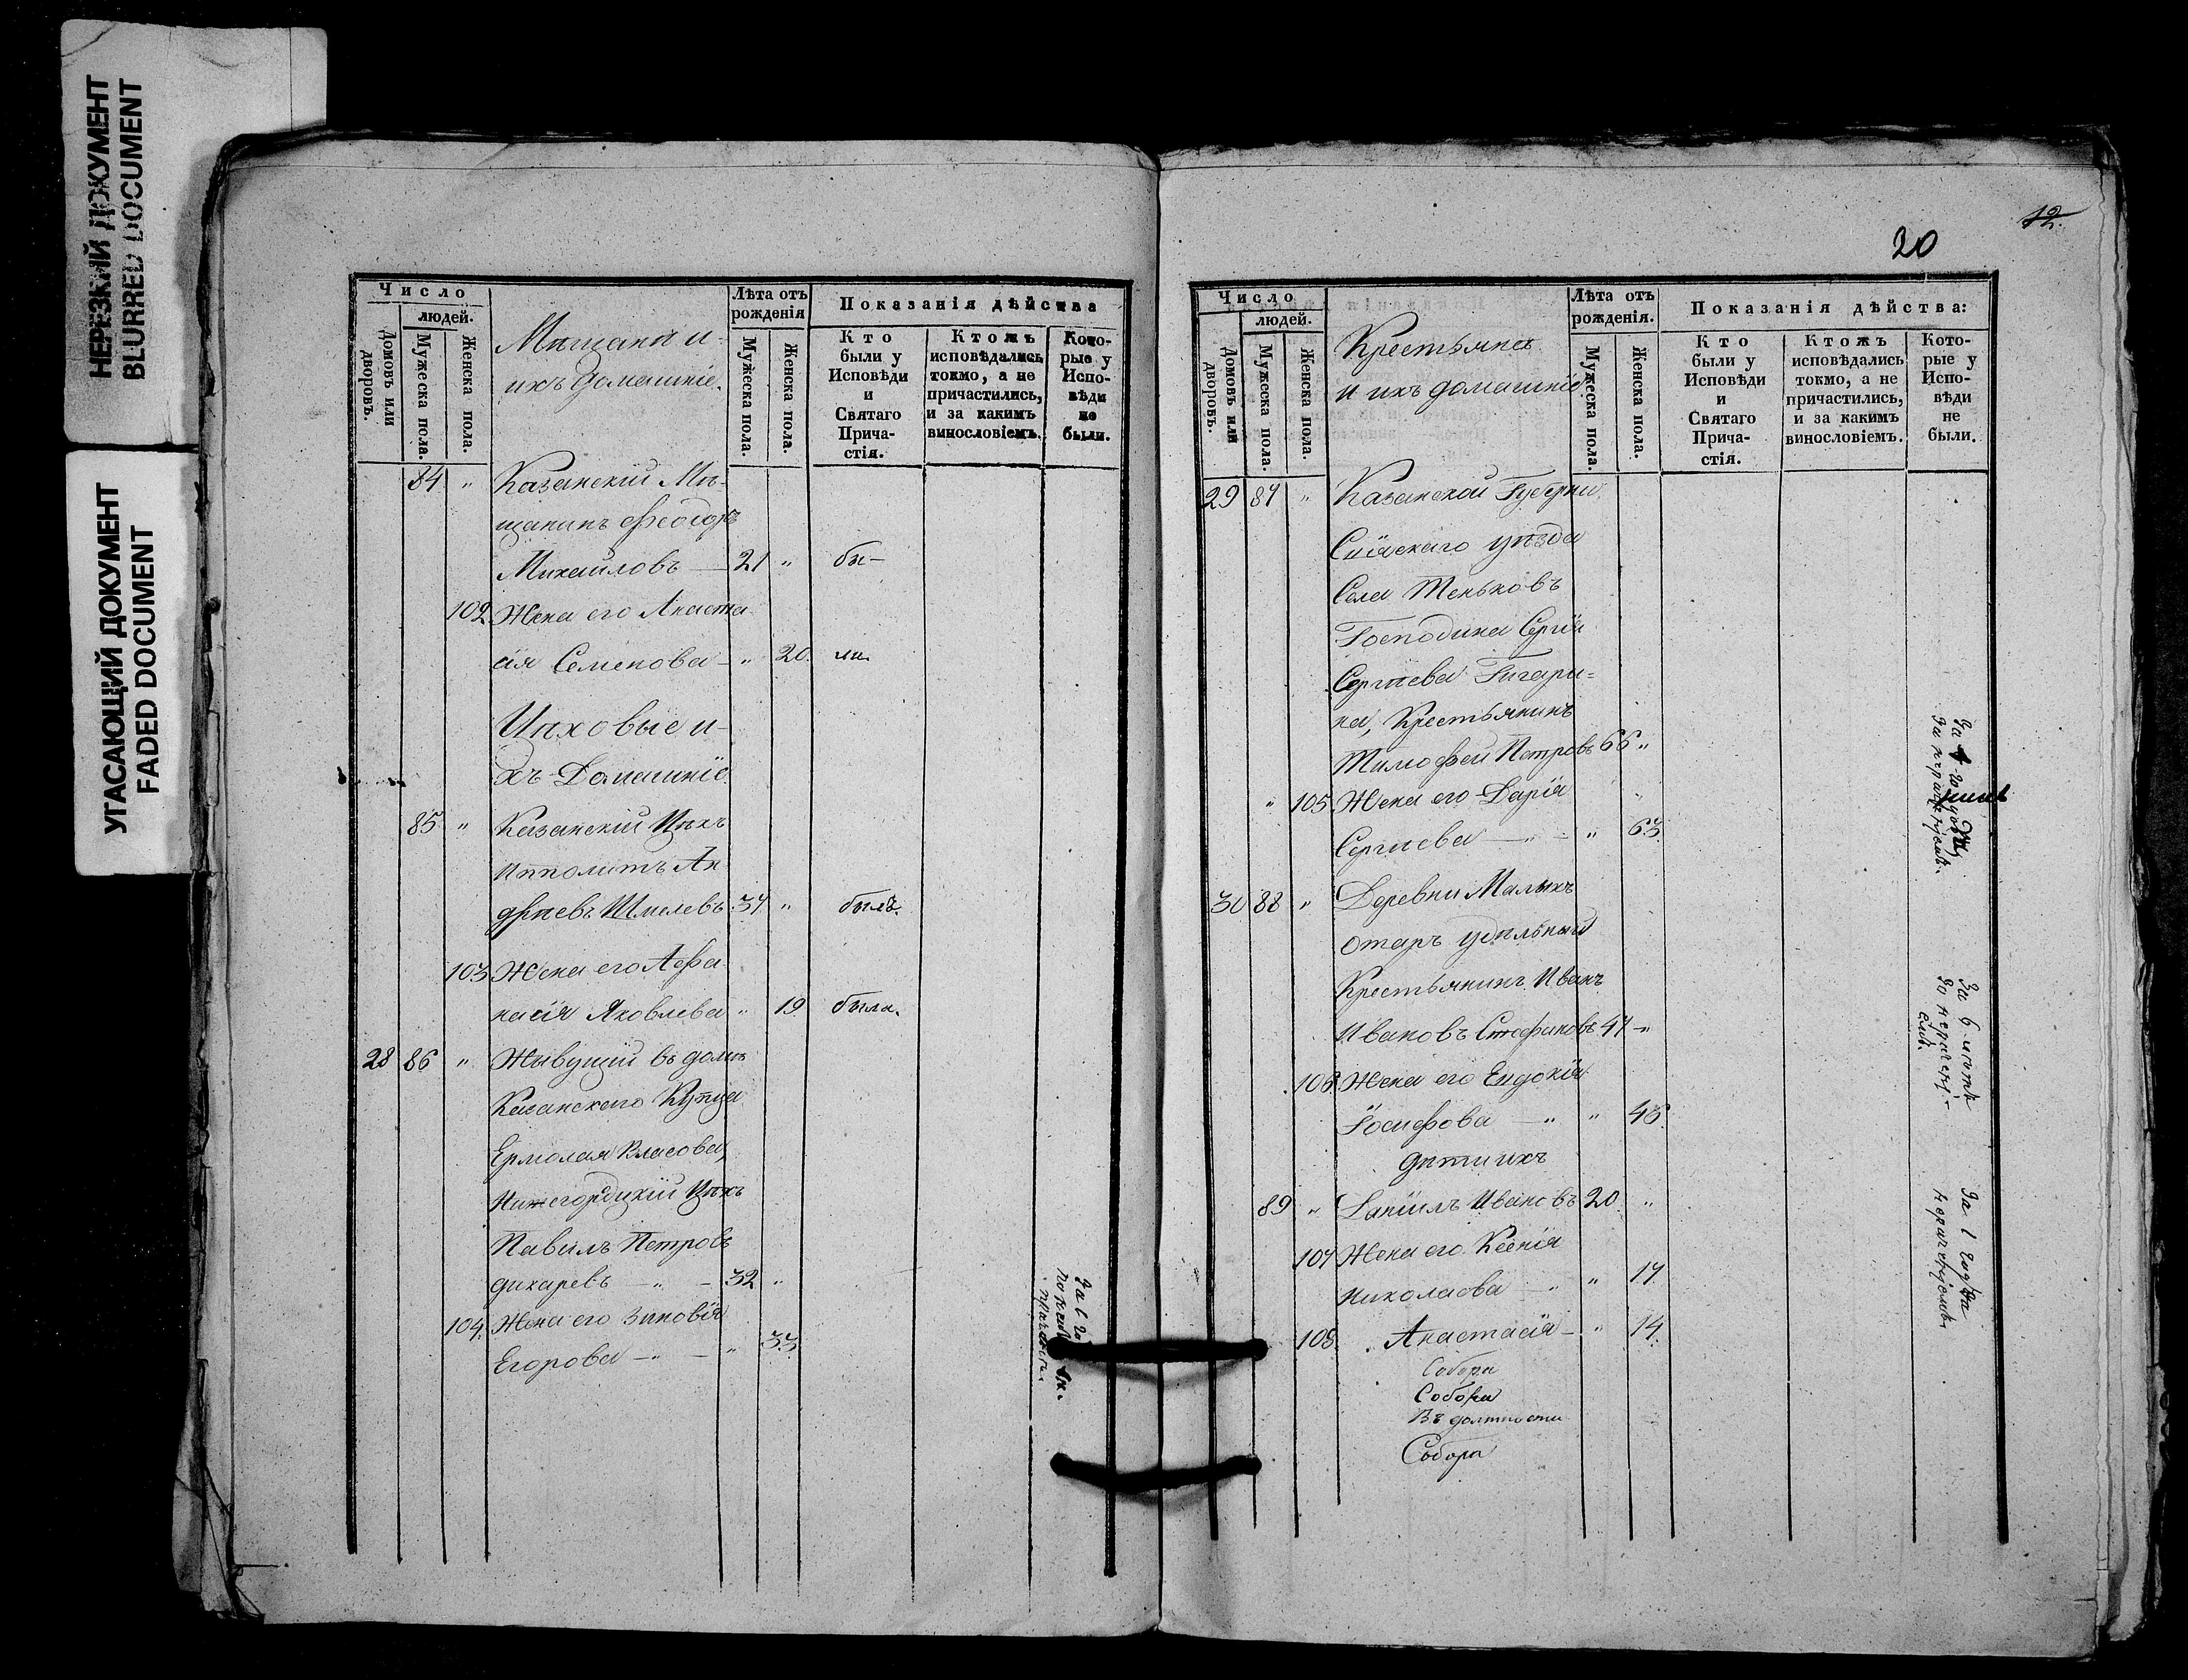 НЕРЕЗКИЙ ДОКУМЕНТ
BLURRED DOCUMENT
УГАСАЮЩИЙ ДОКУМЕНТ
FADED DOCUMENT
Число
людей.
Домовъ или дворовъ.
Мужеска пола.
Женска пола.
Мѣщани и
ихъ домашніе.
Лѣта отъ рожденія
Мужеска пола.
Женска пола.
Показанія дѣйства
Кто были у Исповѣди и Святаго Прича-стія.
Ктожъ исповѣдались токмо, а не причастились, и за какимъ винословіемъ.
Кото-рые у Испо-вѣди не были.
84 " Казанскій Мѣ-
щанинъ Феодоръ
Михайловъ — 21 " бы-
102 Жена его Анаста
сія Семенова — " 20. ли.
Цѣховые и-
хъ Домашніе.
85 " Казанскій Цѣхъ
Ипполитъ Ан
дрѣевъ Шмелевъ 37 " былъ.
103 Жена его Афа
насія Яковлева " 19 была.
28 86 " Живущій въ домѣ
Казанскаго Купца
Ермолая Власова,
Нижегородцкій Цѣхъ
Павилъ Петровъ
дихаревъ — " — 32 "
104. Жена его Зиновія
Егорова — " — " 33.
12.
20
Число
людей.
Домовъ или дворовъ.
Мужеска пола.
Женска пола.
Крестьяне
и ихъ домашніе
Лѣта отъ рожденія.
Мужеска пола.
Женска пола.
Показанія дѣйства:
Кто были у Исповѣди и Святаго Прича-стія.
Ктожъ исповѣдались токмо, а не причастились, и за какимъ винословіемъ.
Кото-рые у Испо-вѣди не были.
29 87 " Казанской Губерни
Свіяскаго уѣзда
Села Теньковъ
Господина Сергія
Сергѣева Гагари=
на, Крестьянинъ
Тимофей Петровъ 66 "
" 105. Жена его Дарія "
Сергѣева — " — " 63.
30 88 " Деревни Малыхъ
Отаръ удѣльный
Крестьянинъ Иванъ
Ивановъ Стефановъ 47 — "
106. Жена его Евдокія
Іосифова — " " 46.
дѣти ихъ
89 " Даніилъ Ивановъ 20. "
107 Жена его Ксенія
Николаева — " " 17
108. Анастасія — " 14.
Собора
Собора
Въ должности
Собора